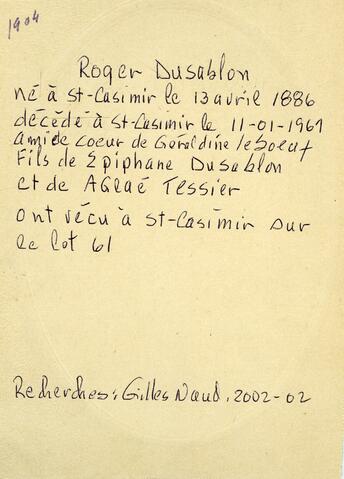 1904
Roger Dusablon
né à St-Casimir le 13 avril 1886
décédé à St-Casimir le 11-01-1961
ami de coeur de Géraldine leboeuf
Fils de Épiphane Dusablon
et de Aglaé Tessier
ont vécu à St-Casimir sur
le lot 61
Recherches: Gilles Naud, 2002-02